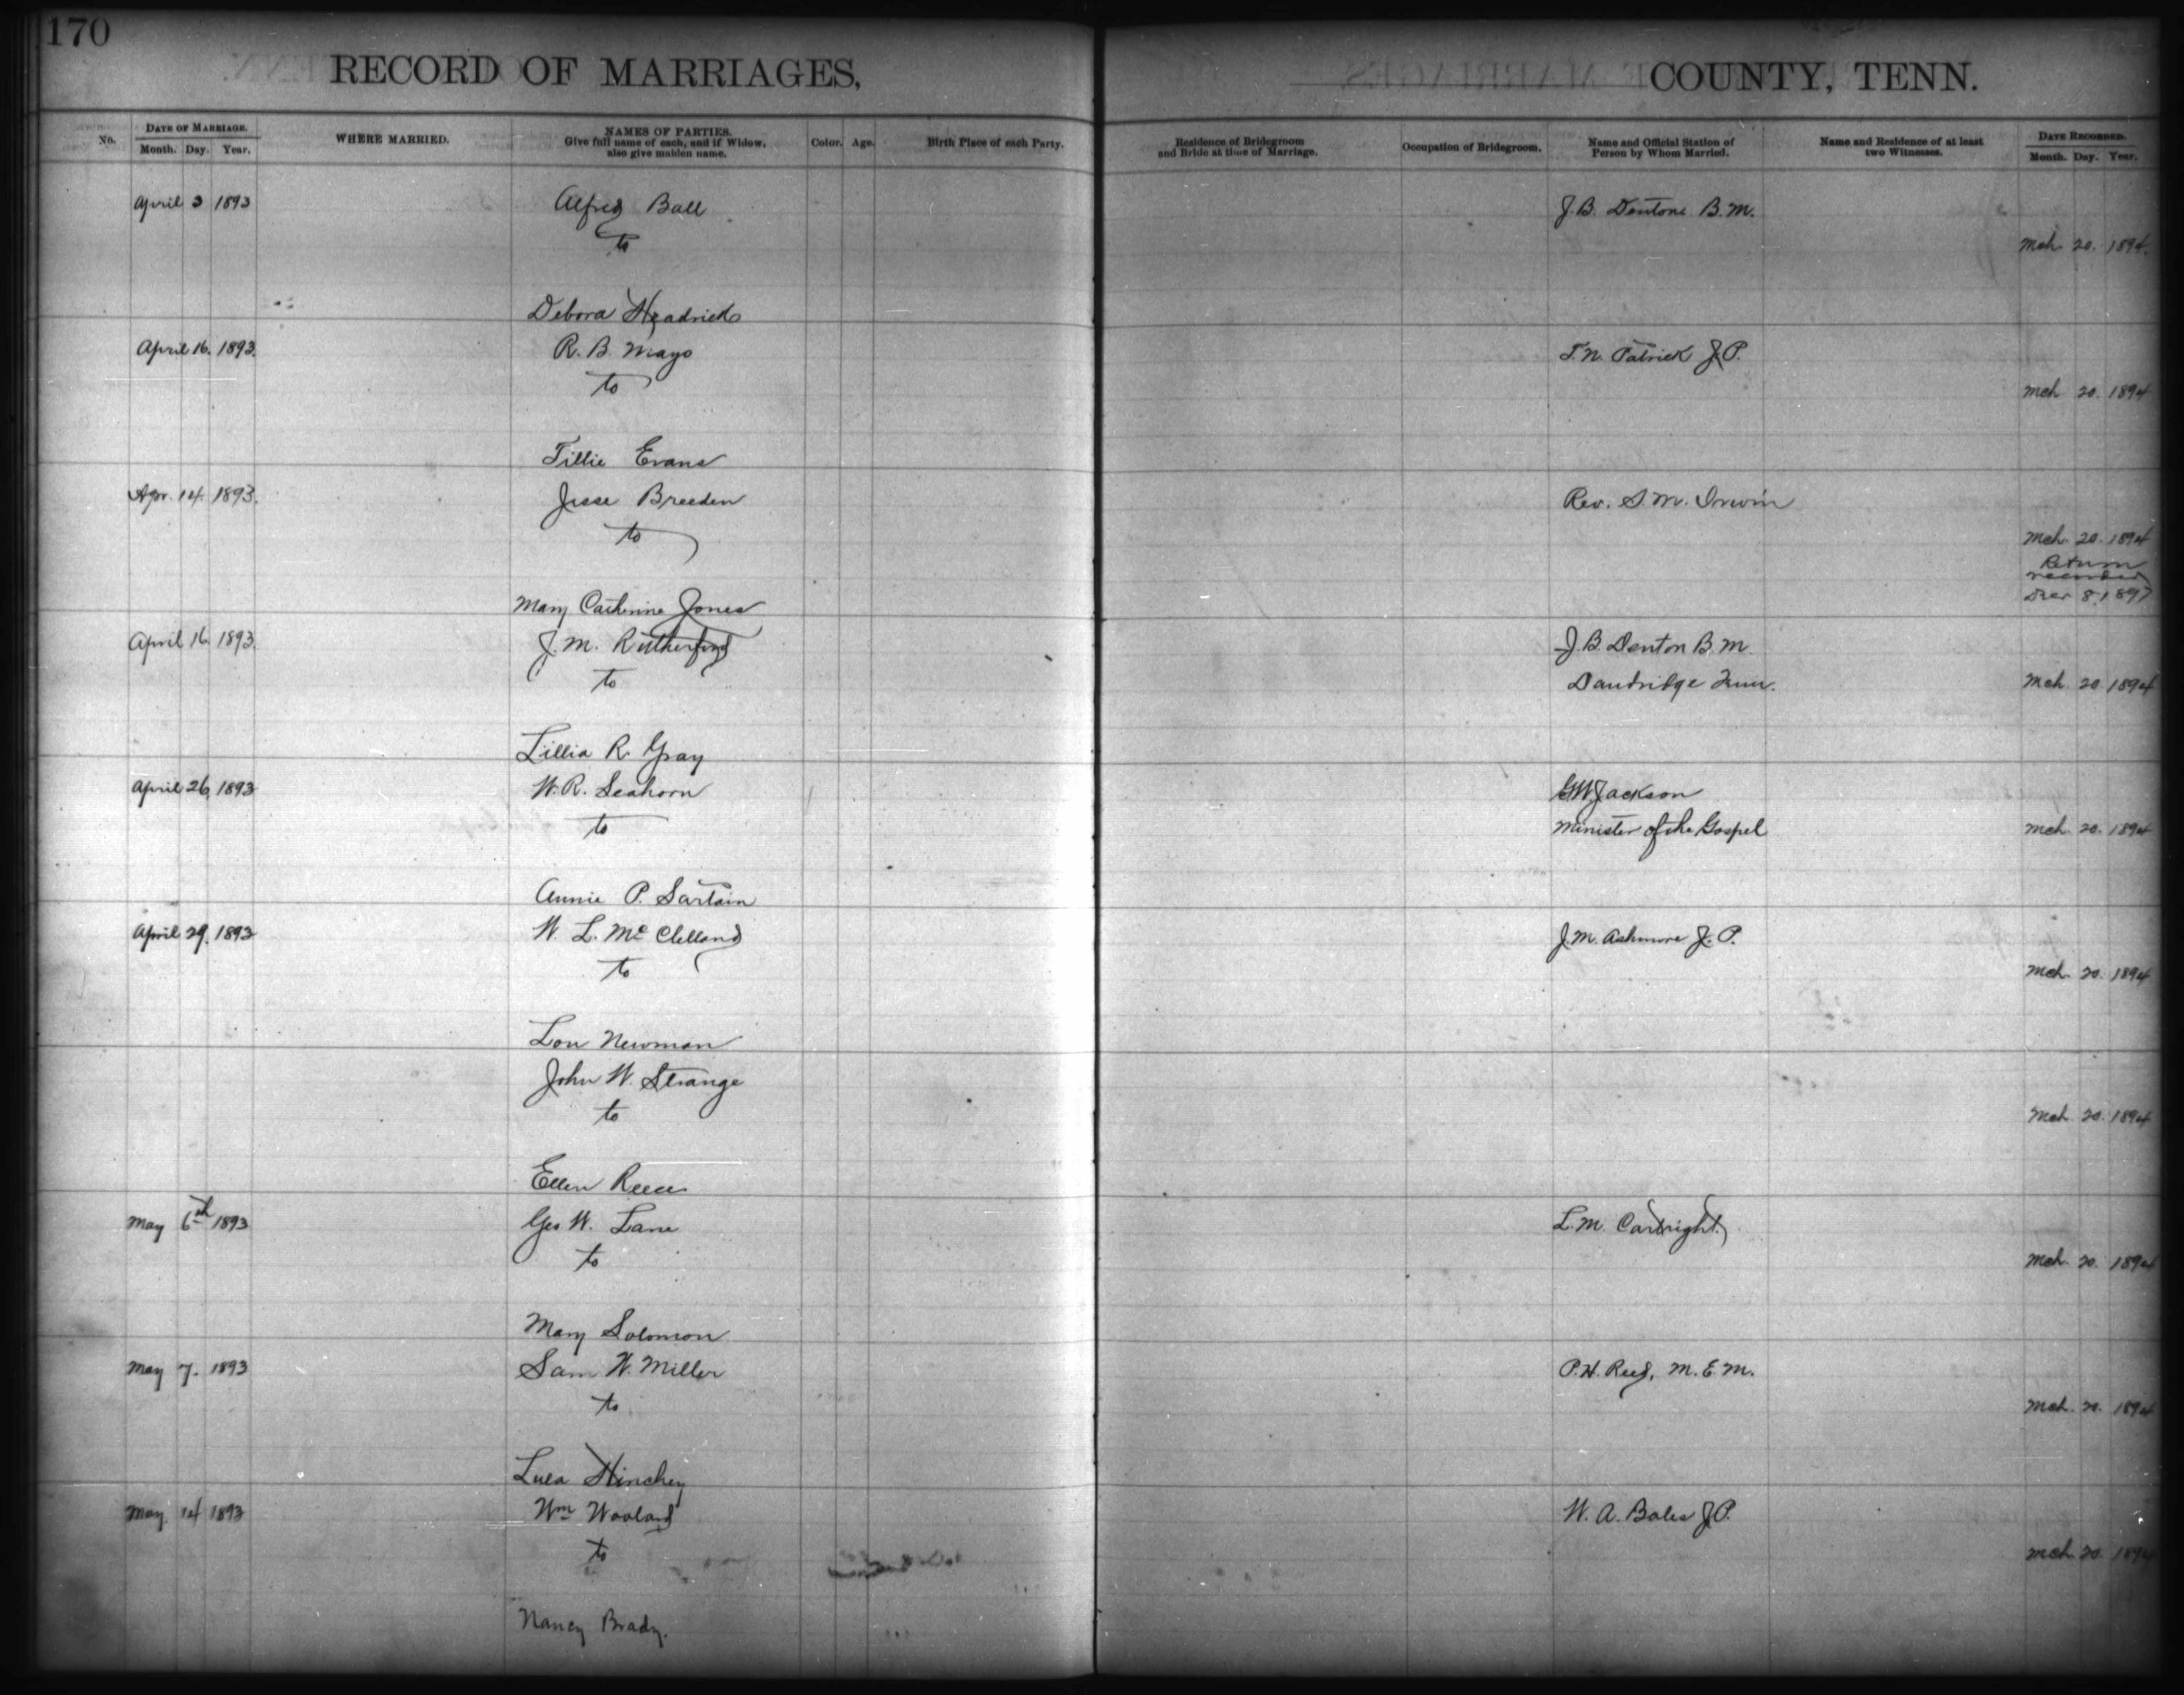 170
RECORD OF MARRIAGES, COUNTY, TENN.
No. DATE OF MARRIAGE. Month. Day. Year. WHERE MARRIED. NAMES OF PARTIES. Give full name of each, and if Widow, also give maiden name. Color. Age. Birth Place of each Party. Residence of Bridegroom and Bride at time of Marriage. Occupation of Bridegroom. Name and Official Station of Person by Whom Married. Name and Residence of at least two Witnesses. DATE RECORDED. Month. Day. Year.
April 3 1893 Alfred Ball J.B. Dentone B.M.
to Mch. 20. 1894.
Debora Headrick
April 16. 1893. R. B. Mayo T. N. Patrick J.P.
to Mch 20. 1894
Tillie Evans
Apr. 14. 1893. Jesse Breeden Rev. S. M. Irwin
to Mch. 20. 1894
Return
recorded
8, 1897
Mary Catherine Jones
April 16 1893. J. M. Rutherford J. B. Denton B. M.
to Dandridge Tenn. Mch 20. 1894
Lillia R. Gray
April 26, 1893 W. R. Seahorn GW Jackson
to Minister of the Gospel Mch. 20. 1894
Annie P. Sartain
April 29. 1893 W. L. Mc Clelland J. M. Ashmore J. P.
to Mch. 20. 1894
Lou Newman
John W. Strange
to Mch. 20. 1894
Ellen Reece
May 6th 1893 Geo W. Lane L. M. Cartright
to Mch. 20. 1894
Mary Solomon
May 7. 1893 Sam W. Miller P. H. Reed, M. E. M.
to Mch. 20. 1894
Lula Hinchey
May 14 1893 Wm Wooland W. A. Bales J. P.
to Mch. 20. 1894
Nancy Brady.